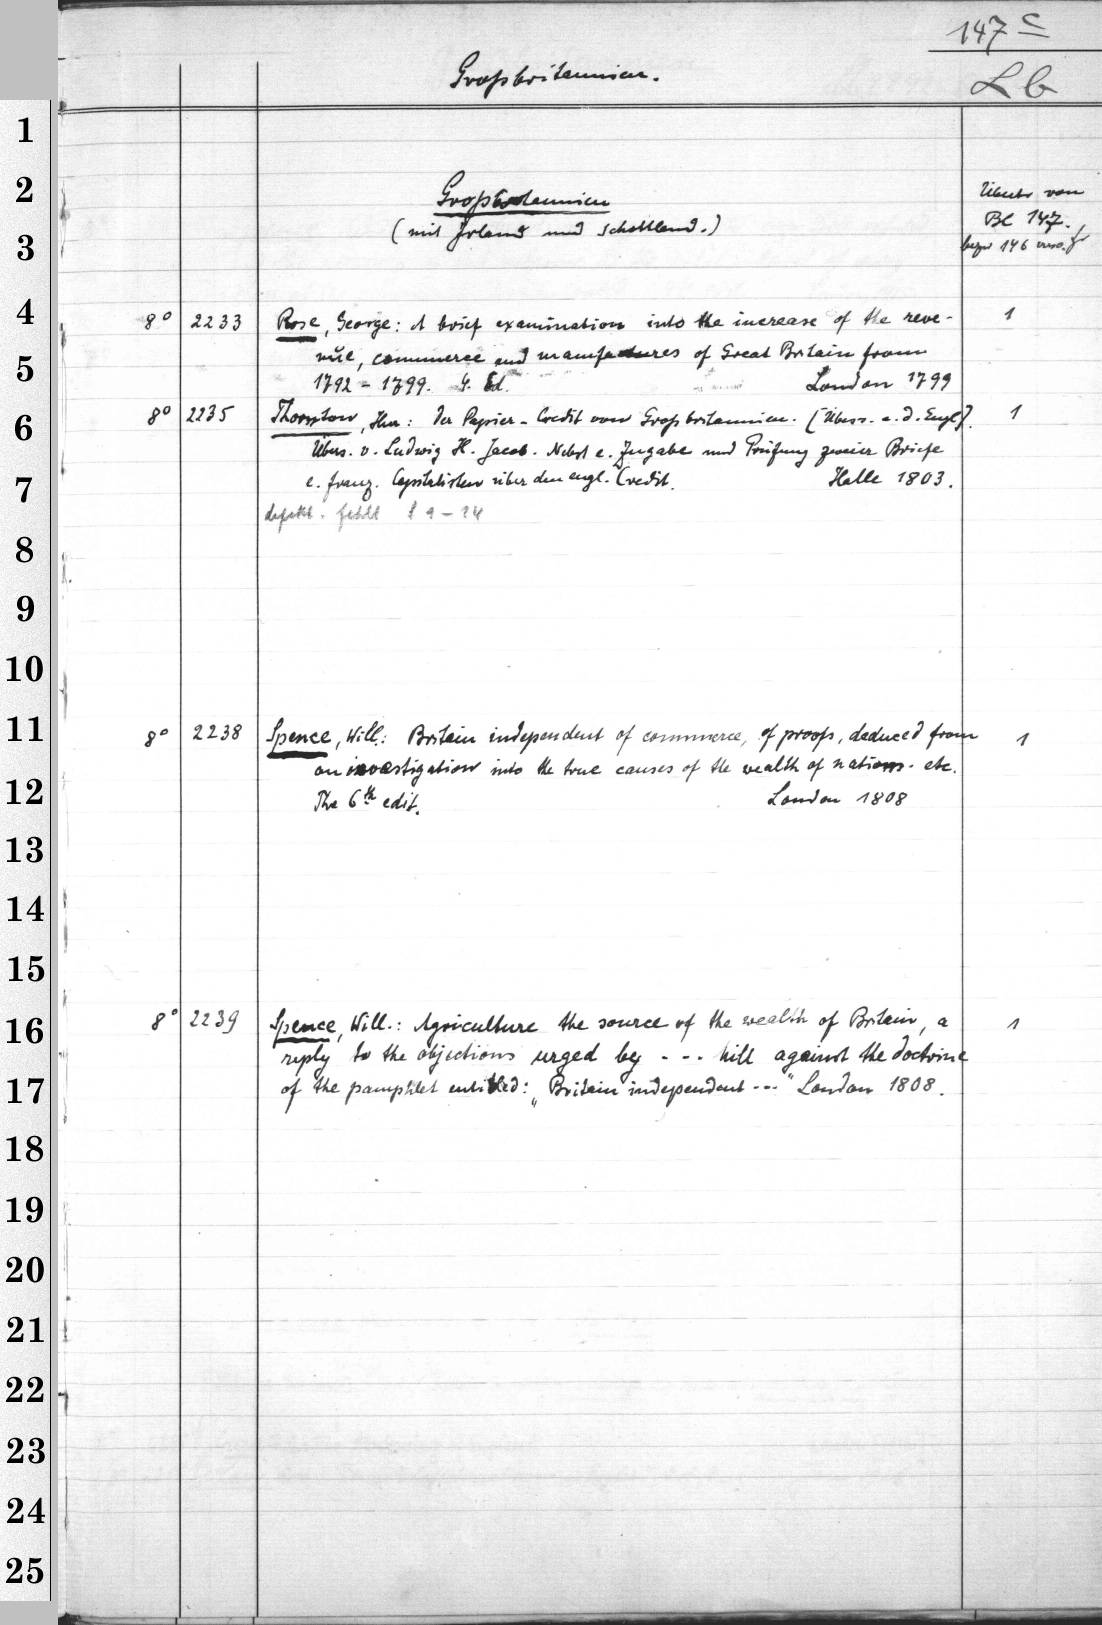 147 c
Großbritannien.
Lb
1
2
3
4
5
6
7
8
9
10
11
12
13
14
15
16
17
18
19
20
21
22
23
24
25
Großbritannien
(mit Irland und Schottland.)
von
BC 147.
bezw 146
8° 2233 Rose, George: A brief examination into the increase of the reve- 1
nue, commerce and manufactures of Great Britain from
1792 - 1799. 4. Ed. London 1799
8° 2235 Thornton, Hen.: Der Papier-Credit von Großbritannien. [Übers. a. d. Engl]. 1
Übers. v. Ludwig H. Jacob. Nebst e. Zugabe und Prüfung zweier Briefe
e. franz. Capitalisten über den engl. Credit. Halle 1803.
defekt. fehlt S 9-24
8° 2238 Spence, Will.: Britain independent of commerce, of proofs, deduced from 1
an investigation into the true causes of the wealth of nations. etc.
The 6th edit. London 1808
8° 2239 Spence, Will.: Agriculture the source of the wealth of Britain, a 1
reply to the objections urged by --- Mill against the doctrine
of the pamphlet entitled: „Britain independent ---" London 1808.